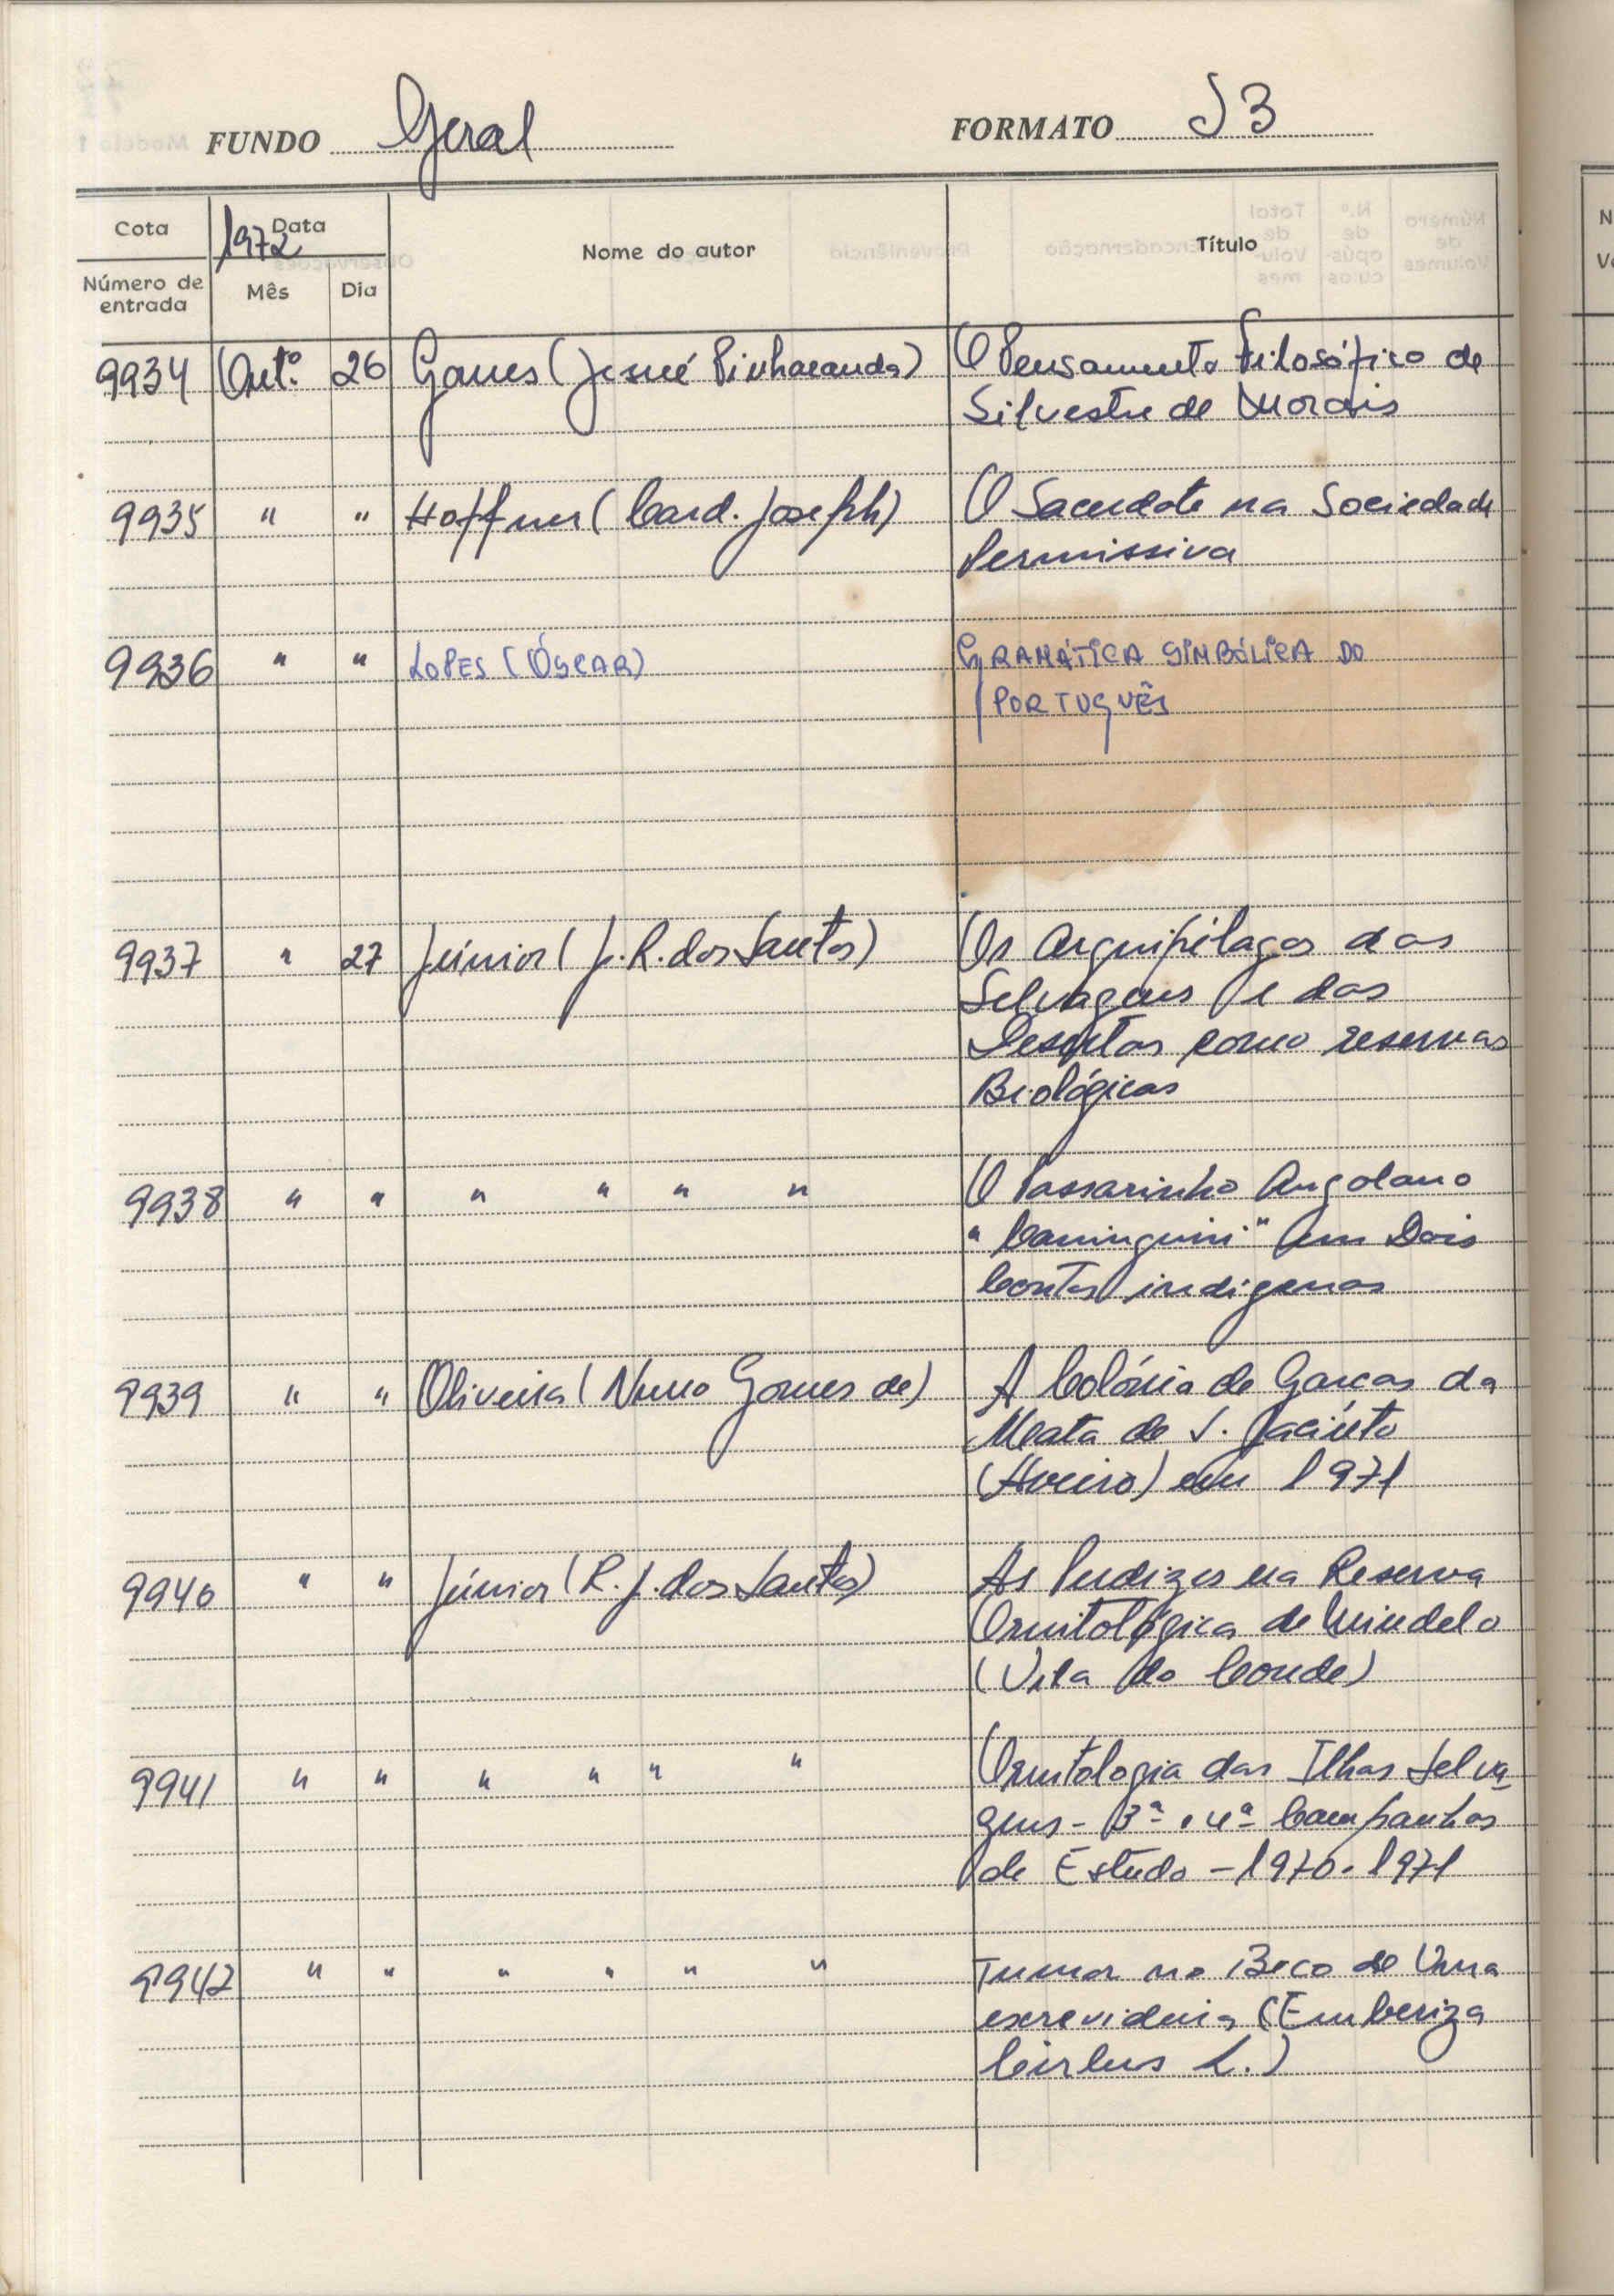 FUNDO Geral FORMATO J3
Cota Data 1972 Nome do autor Título
Número de entrada Mês Dia
9934 Out.º 26 Gomes (Jesué Pinharanda) O Pensamento Filosófico de
Silvestre de Morais
9935 " " Hoffner (Card. Joseph) O Sacerdote na Sociedade
Permissiva
9936 " " LOPES (ÓSCAR) GRAMÁTICA SIMBÓLICA DO
PORTUGUÊS
9937 " 27 Júnior (J. R. dos Santos) Os Arquipélagos das
Selvagens e das
Desertas como reservas
Biológicas
9938 " " " " " " O Passarinho Angolano
" " Em Dois
Contos indigenas
9939 " " Oliveira (Nuno Gomes de) A Colónia de Garças da
Mata de S. Jacinto
(Aveiro) em 1971
9940 " " Júnior (R. J. dos Santos) As Perdizes na Reserva
Ornitológica de Mindelo
(Vila do Conde)
9941 " " " " " " Ornitologia das Ilhas Selva
gens - 3ª e 4ª Campanhas
de Estudo - 1970-1971
9942 " " " " " " Tumor no Bico de Uma
(Emberiza
Cirlus L.)